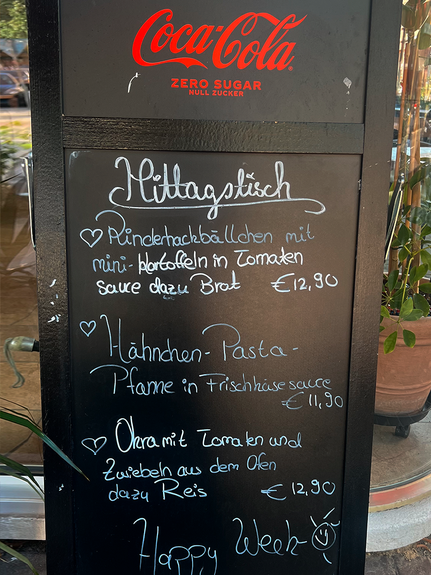 Coca-Cola
ZERO SUGAR
NULL ZUCKER
Mittagstisch
Rinderhackbällchen mit
mini-kartoffeln in Tomaten
sauce dazu Brot €12,90
Hähnchen-Pasta-
Pfanne in Frischkäsesauce
€11,90
Okra mit Tomaten und
Zwiebeln aus dem Ofen
dazu Reis €12,90
Happy Week